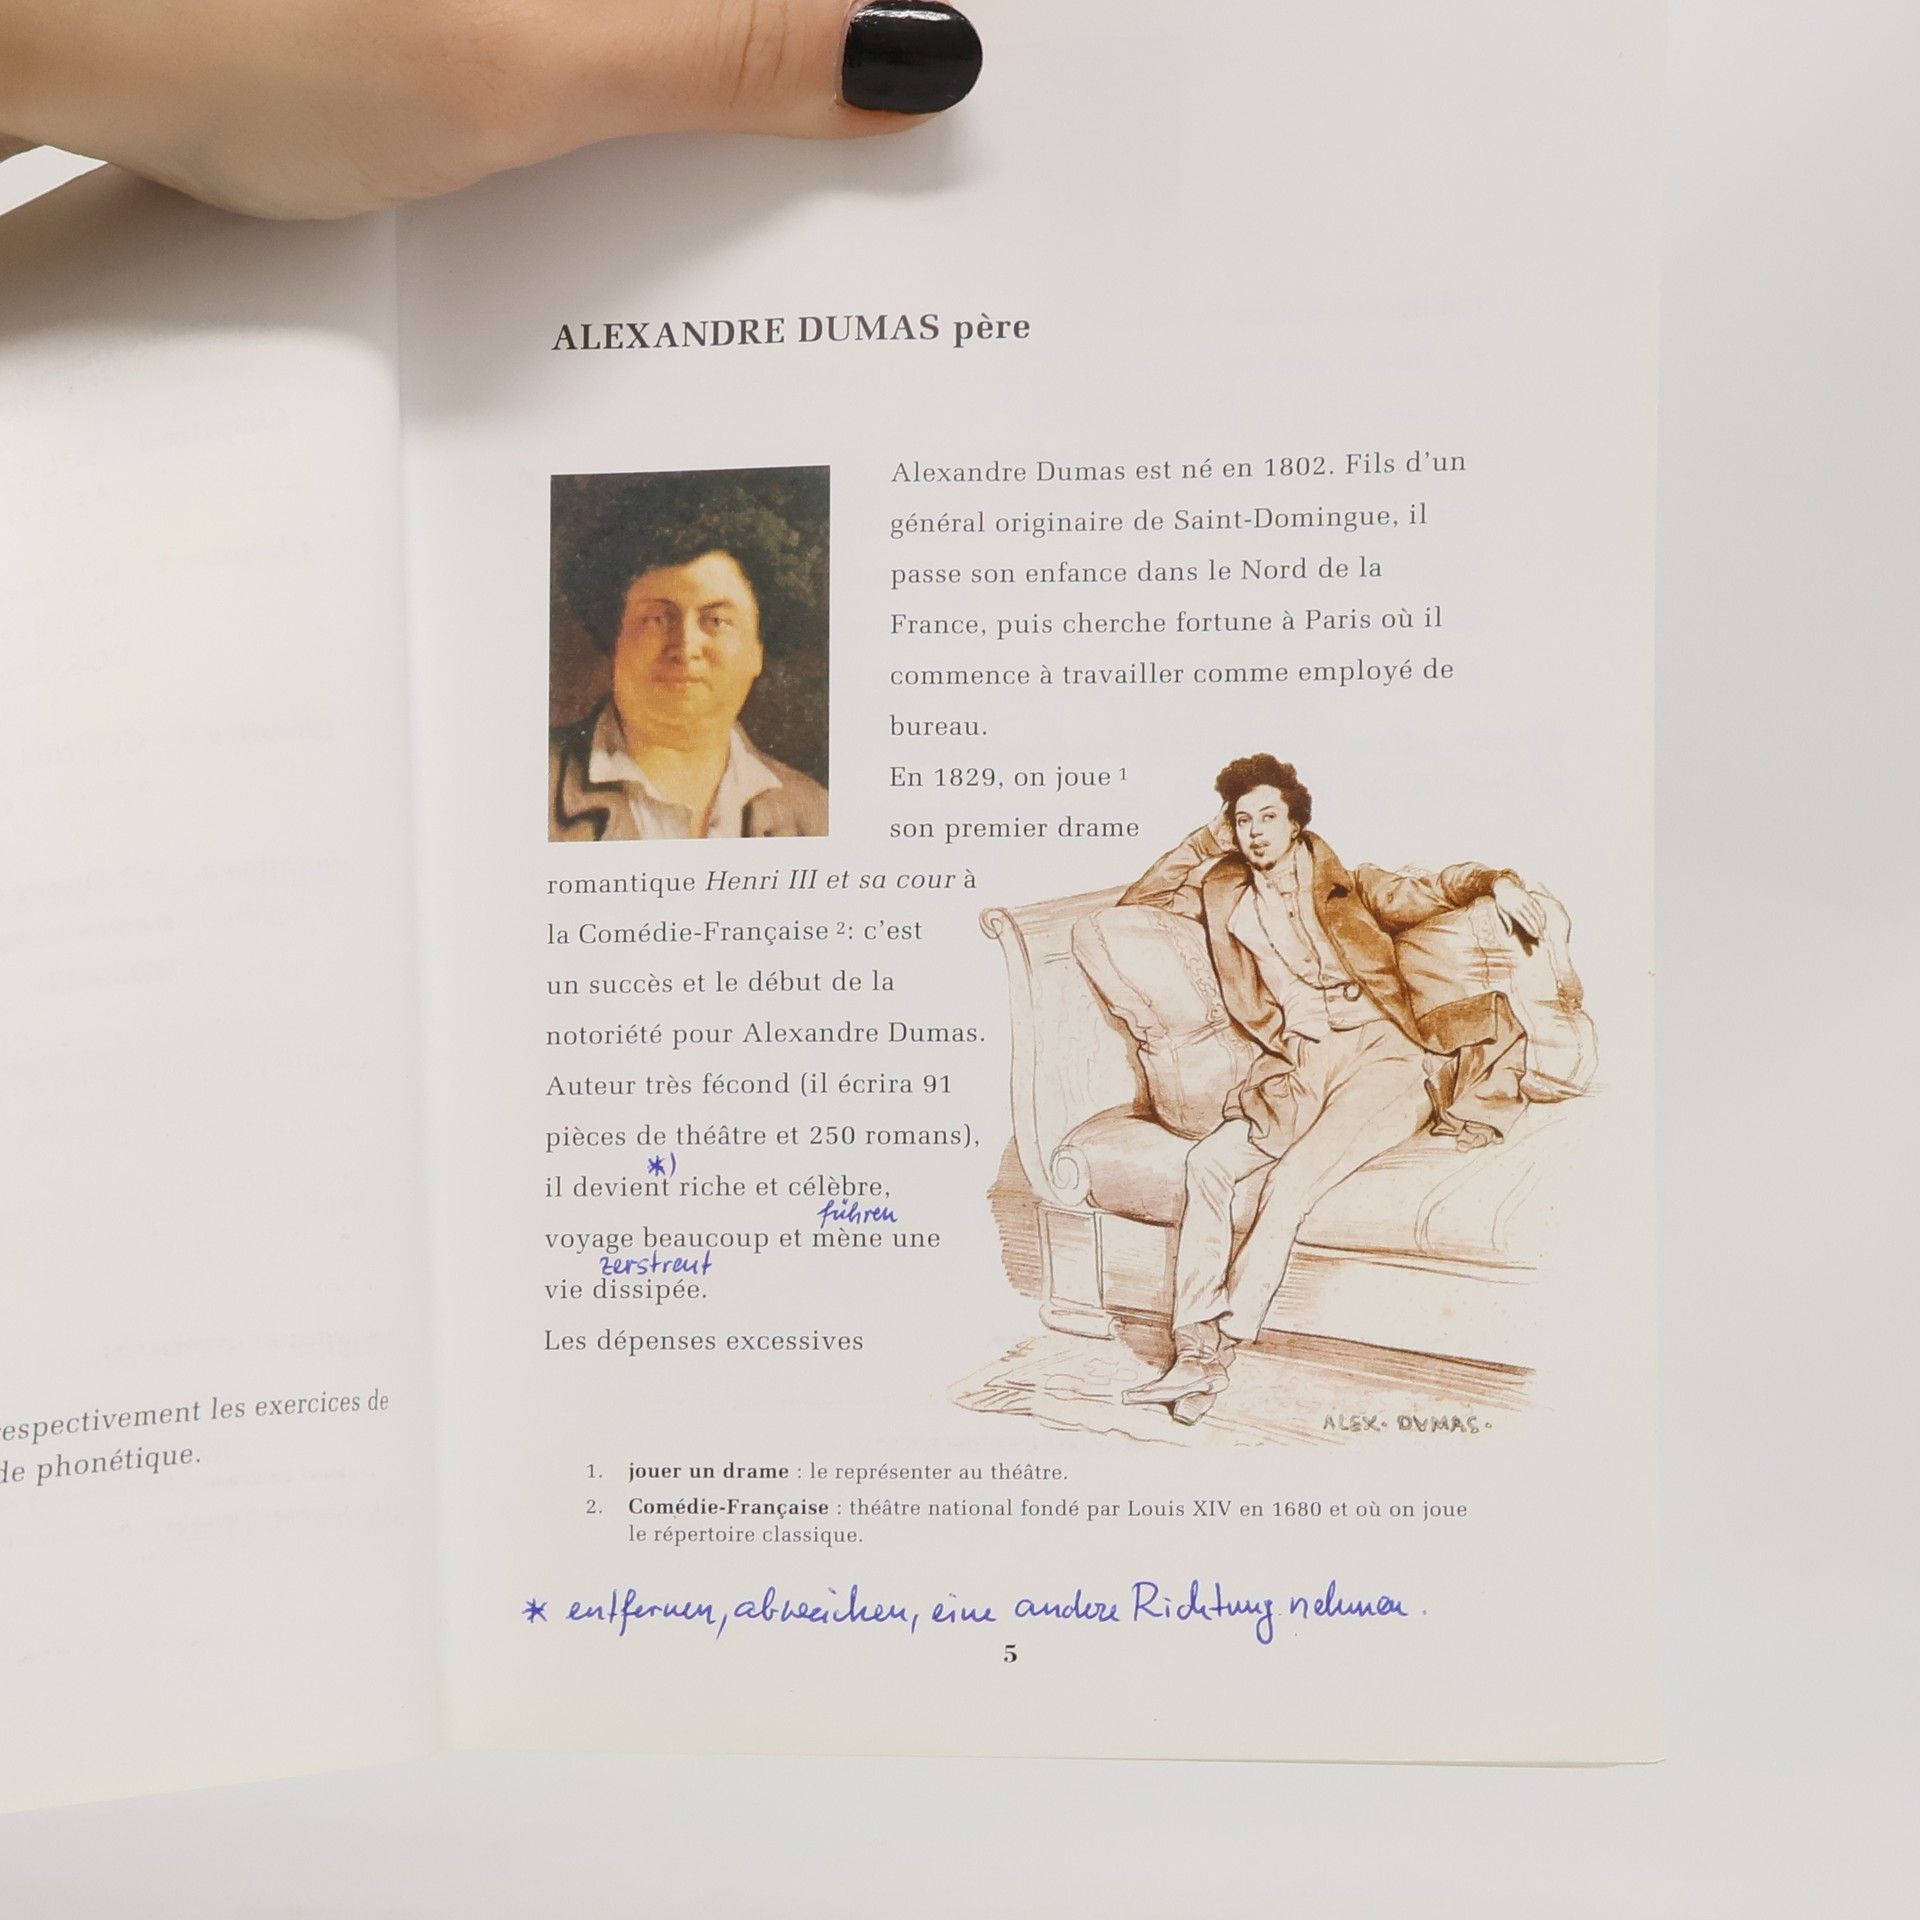 ALEXANDRE DUMAS père
Alexandre Dumas est né en 1802. Fils d'un
général originaire de Saint-Domingue, il
passe son enfance dans le Nord de la
France, puis cherche fortune à Paris où il
commence à travailler comme employé de
bureau.
En 1829, on joue 1
son premier drame
romantique Henri III et sa cour à
la Comédie-Française 2: c'est
un succès et le début de la
notoriété pour Alexandre Dumas.
Auteur très fécond (il écrira 91
pièces de théâtre et 250 romans),
*)
il devient riche et célèbre,
führen
voyage beaucoup et mène une
zerstreut
vie dissipée.
Les dépenses excessives
ALEX. DUMAS.
1. jouer un drame : le représenter au théâtre.
2. Comédie-Française : théâtre national fondé par Louis XIV en 1680 et où on joue
le répertoire classique.
* entfernen, abweichen, eine andere Richtung nehmen.
5
respectivement les exercices de
de phonétique.